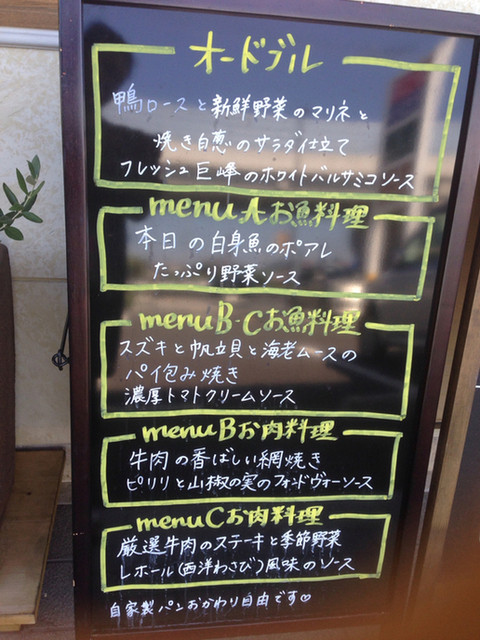 オードブル
鴨ロースと新鮮野菜のマリネと
焼き白葱のサラダ仕立て
フレッシュ巨峰のホワイトバルサミコソース
menu A お魚料理
本日の白身魚のポアレ
たっぷり野菜ソース
menu B・C お魚料理
スズキと帆立貝と海老ムースの
パイ包み焼き
濃厚トマトクリームソース
menu B お肉料理
牛肉の香ばしい網焼き
ピリリと山椒の実のフォンドヴォーソース
menu C お肉料理
厳選牛肉のステーキと季節野菜
レホール(西洋わさび)風味のソース
自家製パンおかわり自由です♡